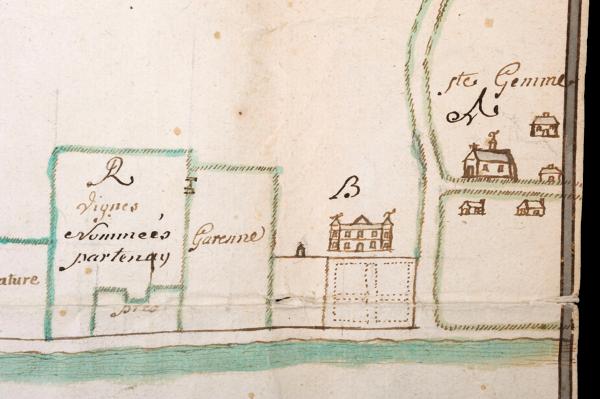 ste Gemme
A
R
B
vignes
Nommées
partenay
Garenne
ature
prés